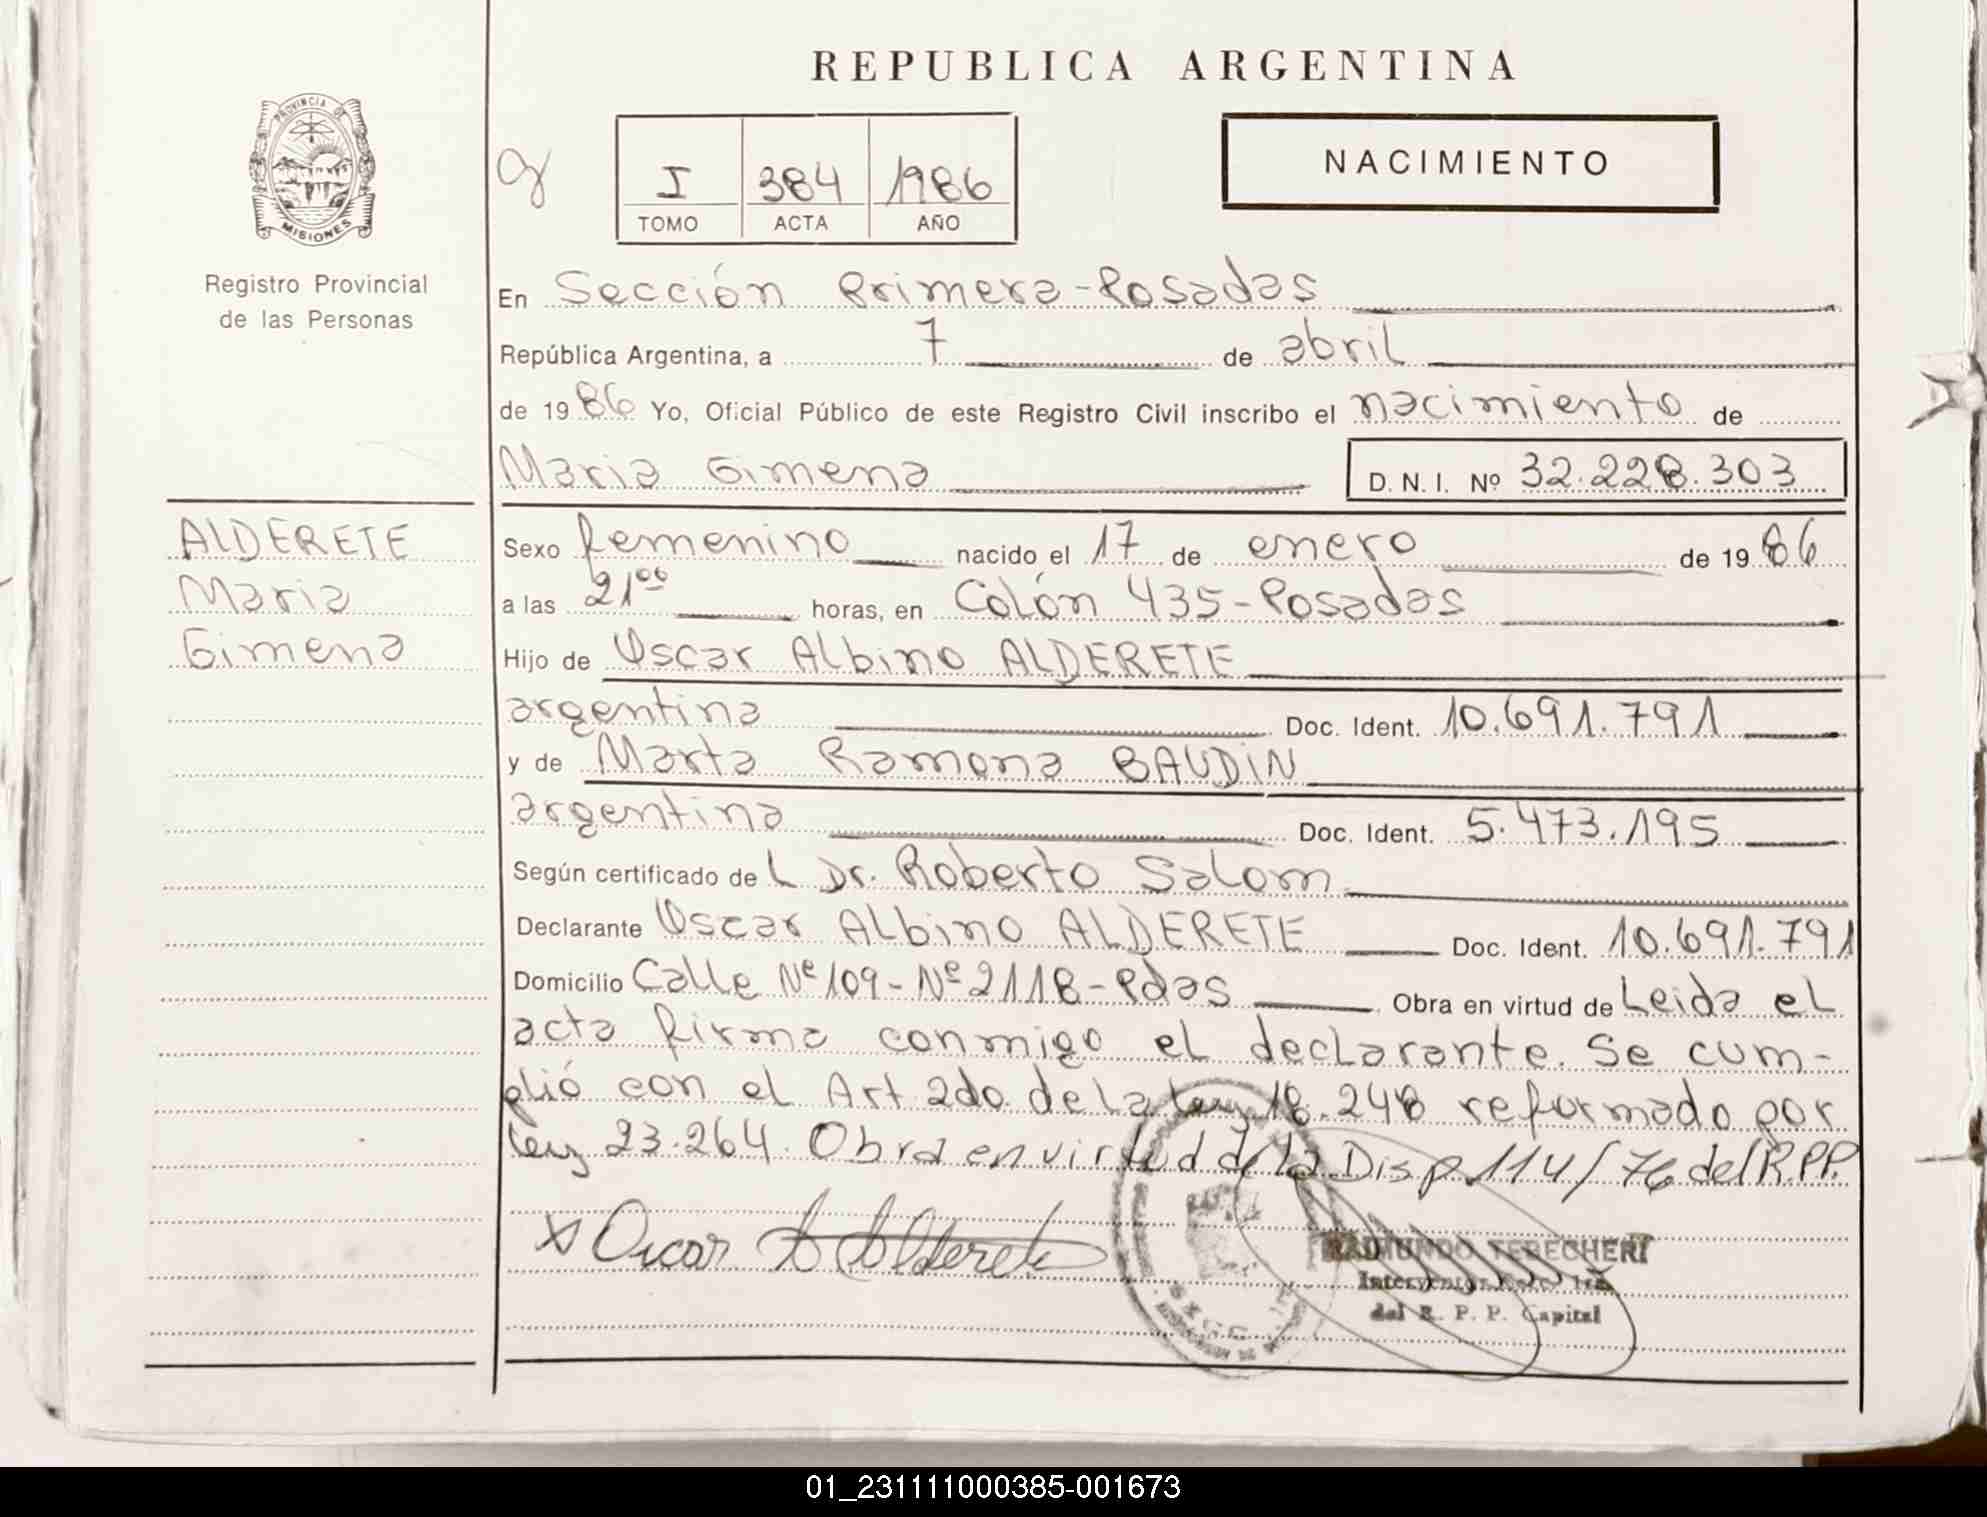 REPUBLICA ARGENTINA
PROVINCIA DE
MISIONES
Registro Provincial
de las Personas
I 384 1986
TOMO ACTA AÑO
NACIMIENTO
En Sección Primera-Posadas
República Argentina, a 7 de abril
de 1986 Yo, Oficial Público de este Registro Civil inscribo el nacimiento de
Maria Gimena D. N. I. Nº 32.228.303
ALDERETE
Maria
Gimena
Sexo femenino nacido el 17 de enero de 1986
a las 21⁰⁰ horas, en Colón 435-Posadas
Hijo de Oscar Albino ALDERETE
argentina Doc. Ident. 10.691.791
y de Marta Ramona BAUDIN
argentina Doc. Ident. 5.473.195
Según certificado de L Dr. Roberto Salom
Declarante Oscar Albino ALDERETE Doc. Ident. 10.691.791
Domicilio Calle Nº 109-Nº 2118-Pdas Obra en virtud de Leida el
acta firma conmigo el declarante. Se cum-
plió con el Art 2do. de la Ley 18.248 reformado por
Ley 23.264. Obra en virtud de la Disp 114/76 del R.P.P.
x Oscar A Alderete
RAIMUNDO TERECHERI
Interventor Secc. 1ra.
del R. P. P. Capital
01_231111000385-001673